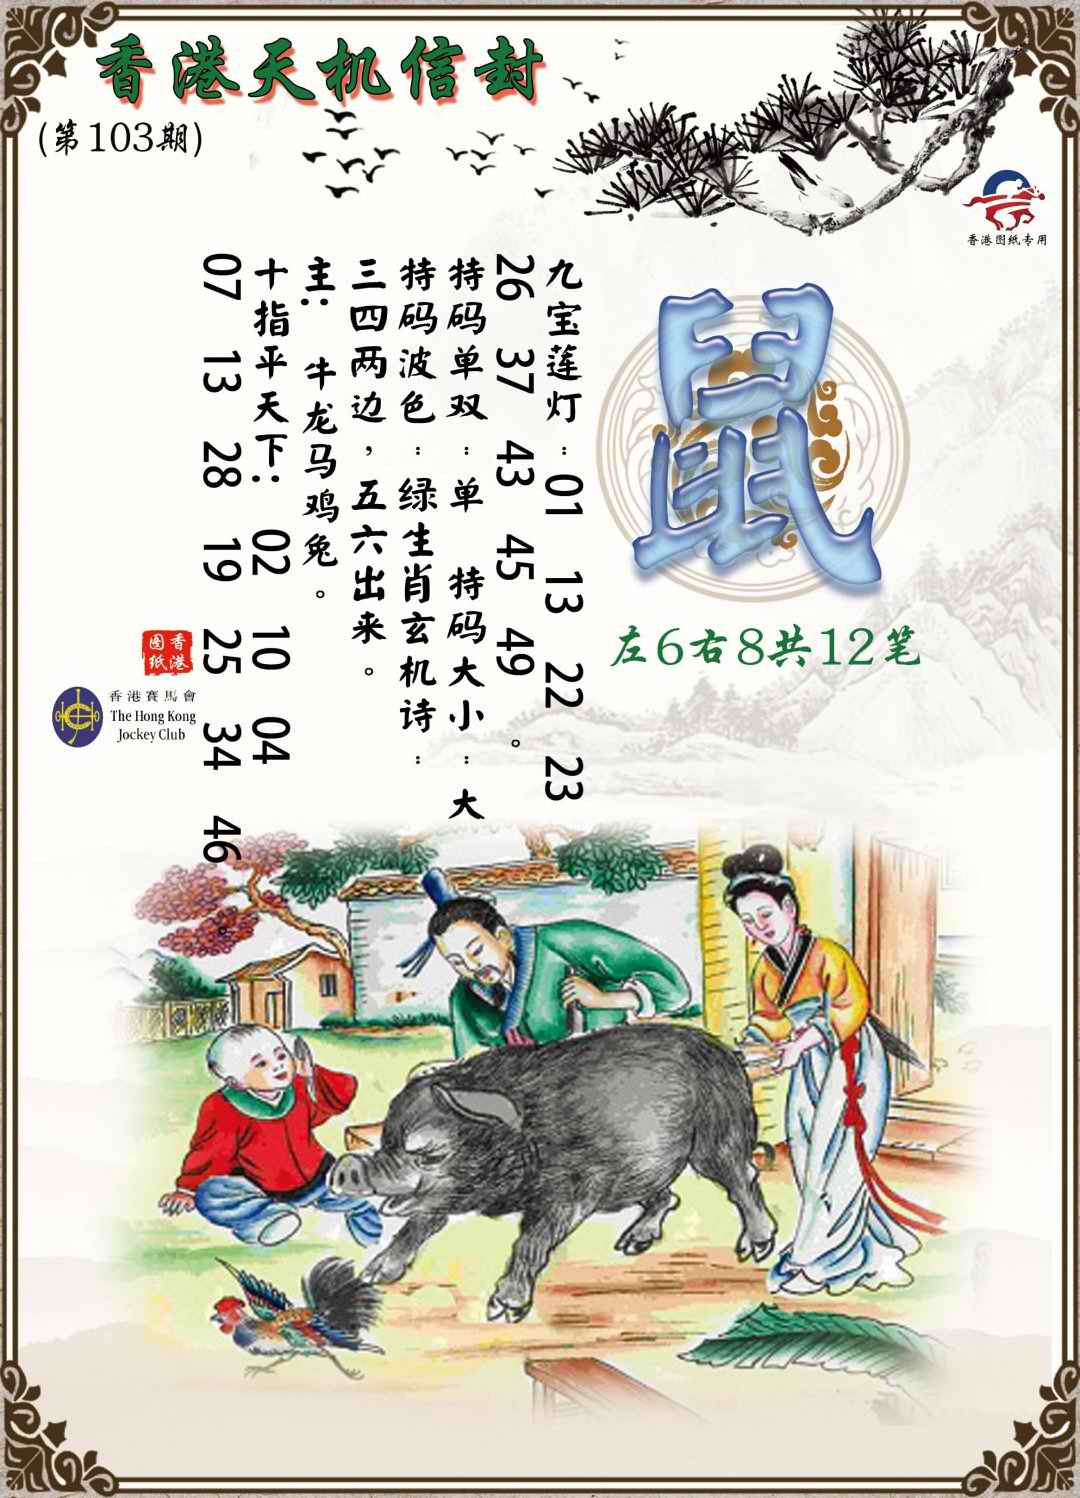 香港天机信封
(第103期)
香港图纸专用
鼠
左6右8共12笔
九宝莲灯：01 13 22 23
26 37 43 45 49。
特码单双：单 特码大小：大
特码波色：绿生肖玄机诗：
三四两边，五六出来。
主：牛龙马鸡兔。
十指平天下：02 10 04
07 13 28 19 25 34 46。
香港
图纸
香港賽馬會
The Hong Kong
Jockey Club